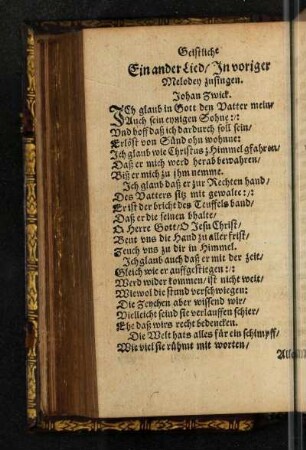 Geistliche
Ein ander Lied/ In voriger
Melodey zusingen.
Johan Zwick.
ICh glaub in Gott den Vatter mein/
Auch sein eynigen Sohne :/:
Vnd hoff daß ich dardurch soll sein/
Erlöst von Sünd ohn wohnne:
Ich glaub wie Christus z Himmel gfahren/
Daß er mich werd herab bewahren/
Biß er mich zu ihm nemme.
Ich glaub daß er zur Rechten hand/
Des Vatters sitz mit gewalte :/:
Er ist der bricht des Teuffels band/
Daß er die seinen bhalte/
O Herre Gott/ O Jesu Christ/
Beut vns die Hand zu aller frist/
Zeuch vns zu dir in Himmel.
Ich glaub auch daß er mit der zeit/
Gleich wie er auffgestiegen :/:
Werd wider kommen/ ist nicht weit/
Wiewol die stund verschwiegen:
Die Zeychen aber wissend wir/
Vielleicht seind sie verlauffen schier/
Ehe daß wirs recht bedencken.
Die Welt hats alles für ein schimpff/
Wie viel sie rühmt mit worten/